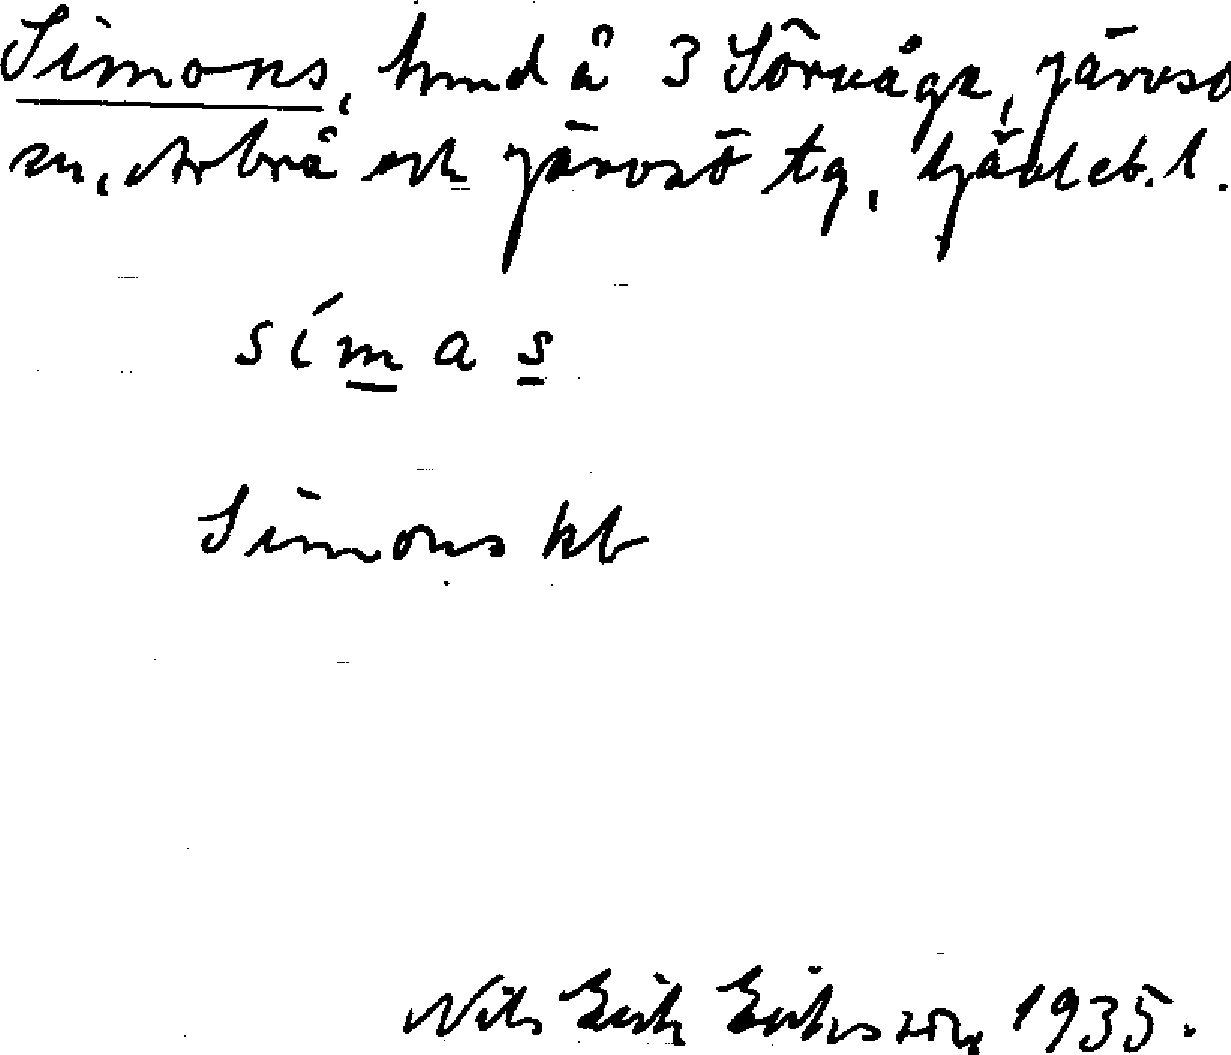 Simons, hmd å 3 Sörvåga, Järvsö
sn, Arbrå och Järvsö tg, Gävleb. l.
símas
Simons kb
Nils Erik Eriksson 1935.